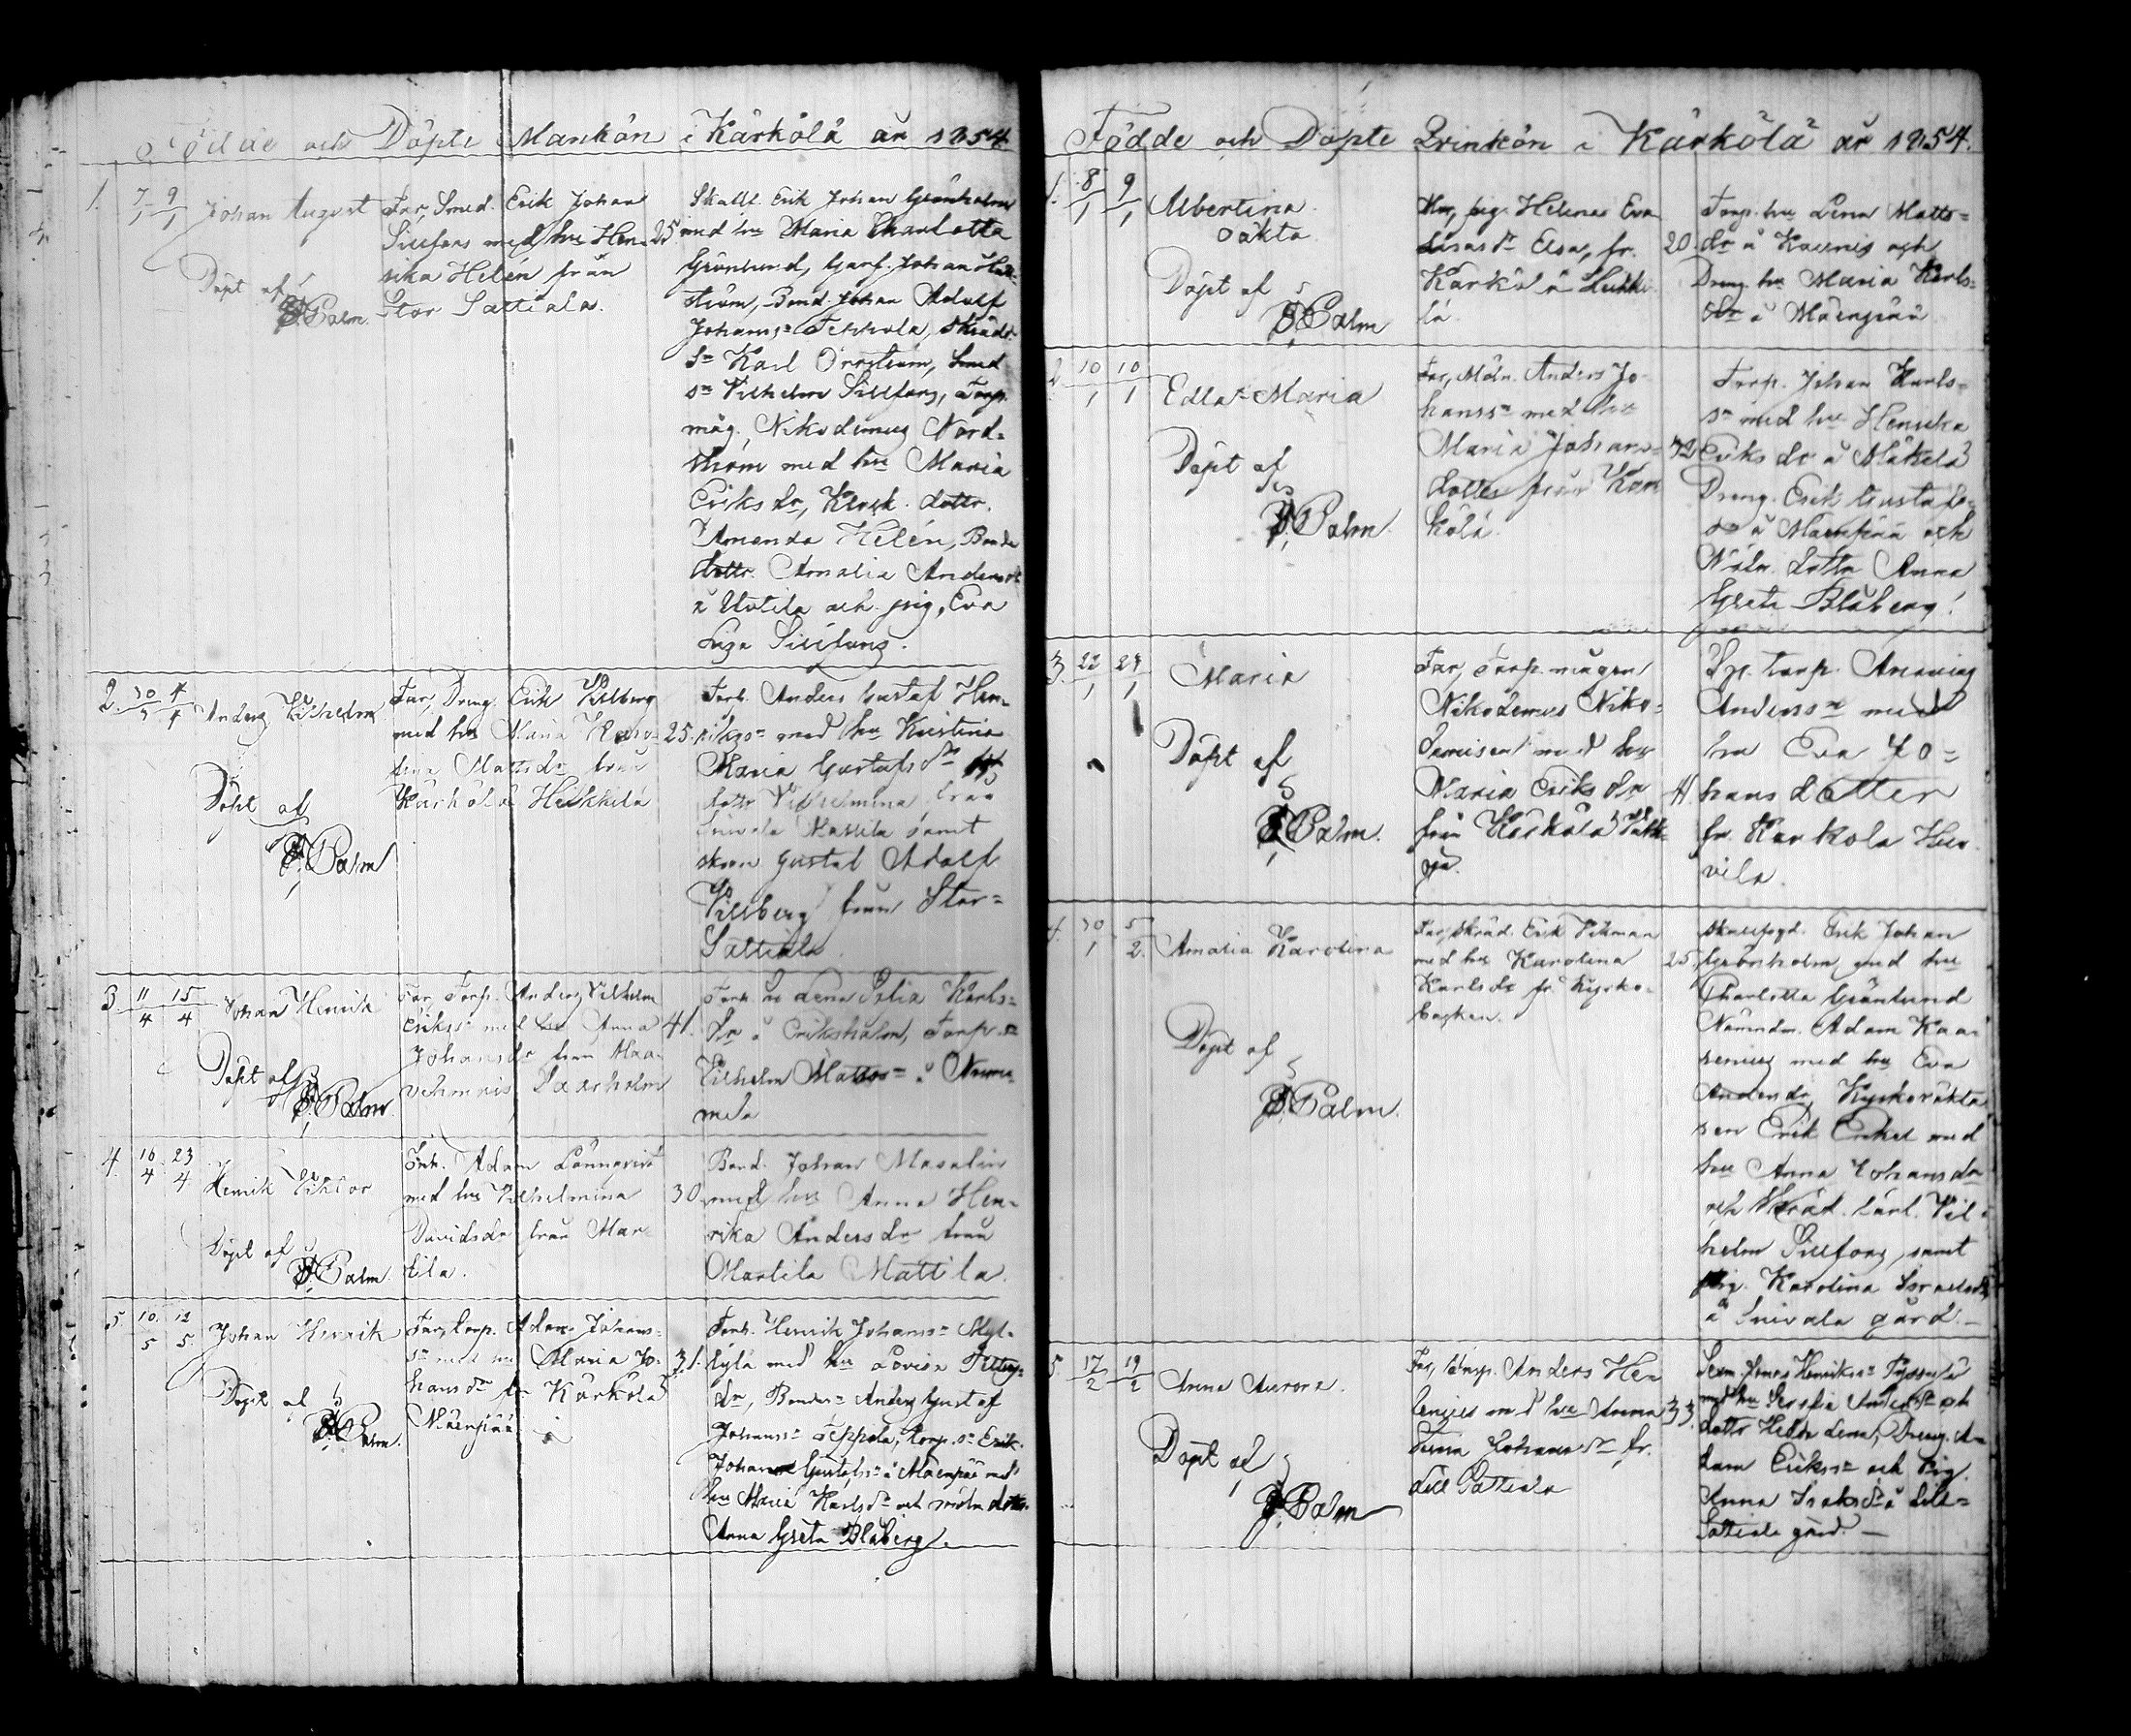 Födde och Döpte Mankön i Kärkölä år 1854
1. 7/1 9/1 Johan August
Döpt af
Palm.
Far, Smed. Erik Johan
Sillfors med hu Hen- 25.
rika Helén från
Stor Sattiala.
Skallf. Erik Johan Grönholm
med hu Maria Charlotta
Grönlund, Garf. Johan
ström, Bond. Johan Adolf
Johanss Teppola, Skrädd.
sn Karl Örnström, Smed
sn Vilhelm Sillfors, Torp.
måg. Nikodemus Nord-
ström med hu Maria
Eriks dr, Klock. dottr.
Amanda Helén, Bonde
dottr. Amalia Anders dr
å Uotila och pig. Eva
Lisa Sillfors.
2. 30/3 4/4 Anders Vilhelm
Döpt af
Palm
Far, Dreng Erik Villberg
med hu Maria 25.
Mattsdr från
Kärkölä Heikkilä
Torp. Anders Gustaf Hen-
rikss med hu Kristina
Maria Gustafs dr
dottr Vilhelmina från
Mattila samt
Gustaf Adolf
Villberg från Stor-
Sattiala.
3. 11/4 15/4 Johan Henrik
Döpt af
Palm.
Far, Torp. Anders Vilhelm
Erikss med hu Anna 41.
Johans dr från Maa-
Torp. hu Lena Karls-
dr å Torp. sn
Vilhelm Matts å
mela
4. 16/4 23/4 Henrik Viktor
Döpt af
Palm.
Inh. Adam Lönnqvist
med hu Vilhelmina 30.
Davidsdr från Mar-
tila.
Bond. Johan Masalin
med hu Anna Hen-
rika Anders dr från
Martila Mattila.
5. 10/5 12/5 Johan Henrik
Döpt af
Palm.
Far, torp. Adam Johans-
sn med hu Maria Jo- 31.
hans dr fr Kärkölä
Mäenpää
Torp. Henrik Johanss Myl-
lylä med hu Lovisa
dr, Bondes Anders Gustaf
Johanss Teppola, torp. sn Erik
Johan Gustafs å Mäenpää med
hu Maria Karls dr och möln. dottr.
Anna Greta Blåberg.
Födde och Döpte Qvinkön i Kärkölä år 1854.
1. 8/1 9/1 Albertina.
oäkta
Döpt af
Palm
Mor, pig. Helena Eva
Elsa, fr. 20.
Kärkölä Heikki-
lä.
Torp. hu Lena Matts-
dr å Kaunis och
Dreng. hu Maria Karls-
dr å Mäenpää
2. 10/1 10/1 Edla Maria
Döpt af
Palm.
Far, Möln. Anders Jo-
hanss med hu
Maria Johans- 32.
dotter från Kär-
kölä.
Torp. Johan Karls-
sn med hu Henrika
Eriks dr å Mäkelä
Dreng. Erik Gustafs-
sn å Mäenpää och
Möln. dottr Anna
Greta Blåberg.
3. 22/1 24/1 Maria
Döpt af
Palm.
Far, Torp. mågen
Nikodemus Niko-
demusen med hu
Maria Eriks dr 41.
från Kärkölä
Torp.
Anderss med
hu Eva Jo-
hans dotter
fr. Kärkölä
vila.
4. 30/1 5/2 Amalia Karolina
Döpt af
Palm.
Far, Skräd. Erik Vikman
med hu Karolina 25.
Karls dr fr Kyrko-
backen.
Skallfogd. Erik Johan
Grönholm med hu
Charlotta Grönlund
Nämndm. Adam Kaa-
senius med hu Eva
Anders dr, Kyrkoväkta-
ren Erik Enkel med
hu Anna Johans dr
och Skräd. lärl. Vil-
helm Sillfors, samt
pig. Karolina Israelsdr
å gård.
5. 17/2 19/2 Anna Aurora.
Döpt af
Palm
Far, torp. Anders He-
lenius med hu Anna 33.
Johans dr fr.
Lill Sattiala
Henrikss
med hu och
dottr Hedda Lena, Dreng. A-
dam Erikss och Pig.
Anna Isaks dr å Lill-
Sattiala gård.